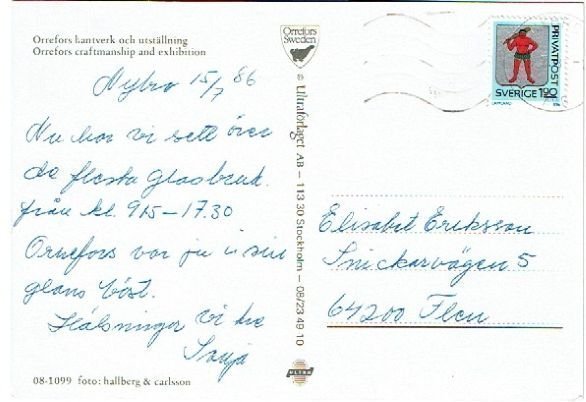 Orrefors hantverk och utställning
Orrefors craftmanship and exhibition
Nybro 15/7 86
Nu har vi sett över
de flesta glasbruk.
från kl. 915-17.30
Orrefors var ju i sin
glans bäst.
Hälsningar vi tre
Sonja
08-1099 foto: hallberg & carlsson
Orrefors
Sweden
© Ultraförlaget AB – 113 30 Stockholm – 08/23 49 10
ULTRA
PRIVATPOST
SVERIGE 190
LAPPLAND
Elisabet Eriksson
Snickarvägen 5
64200 Flen